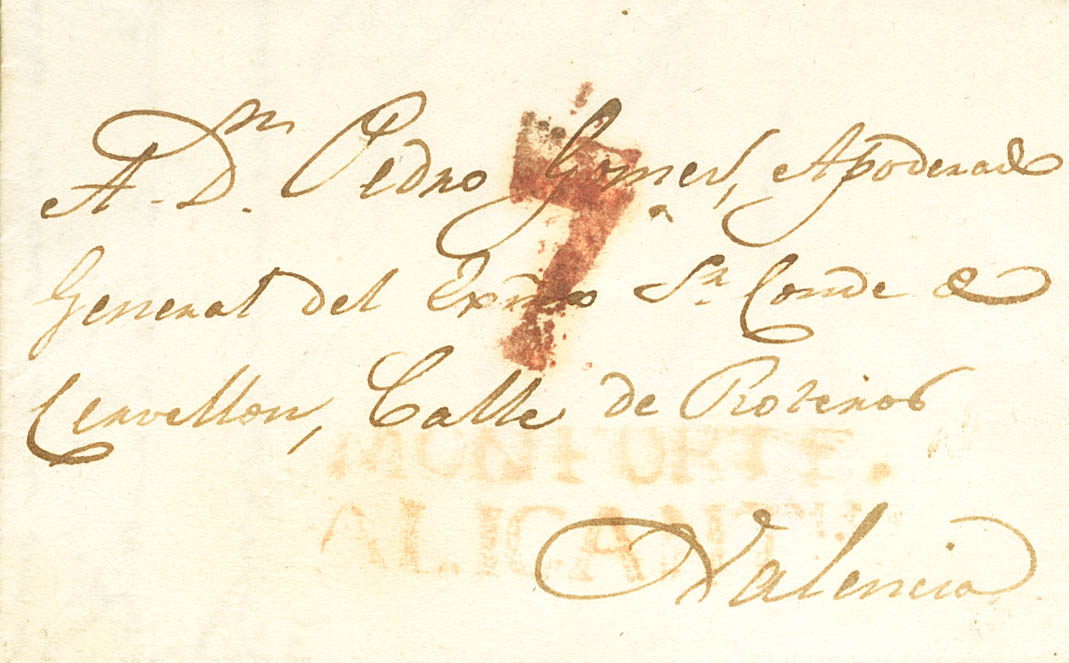 A Dn. Pedro Gomes, Apoderado
7
General del Exmo Sr. Conde de
Cervellon, Calle de Roteros
MONFORTE.
ALICANTE
Valencia